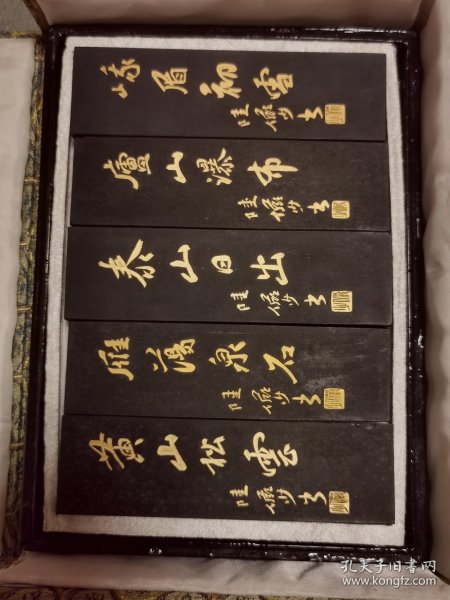 峨眉初雪
陆俨少书
廬山瀑布
陆俨少书
泰山日出
陆俨少书
雁蕩泉石
陆俨少书
黄山松雲
陆俨少书
孔夫子旧书网
www.kongfz.com